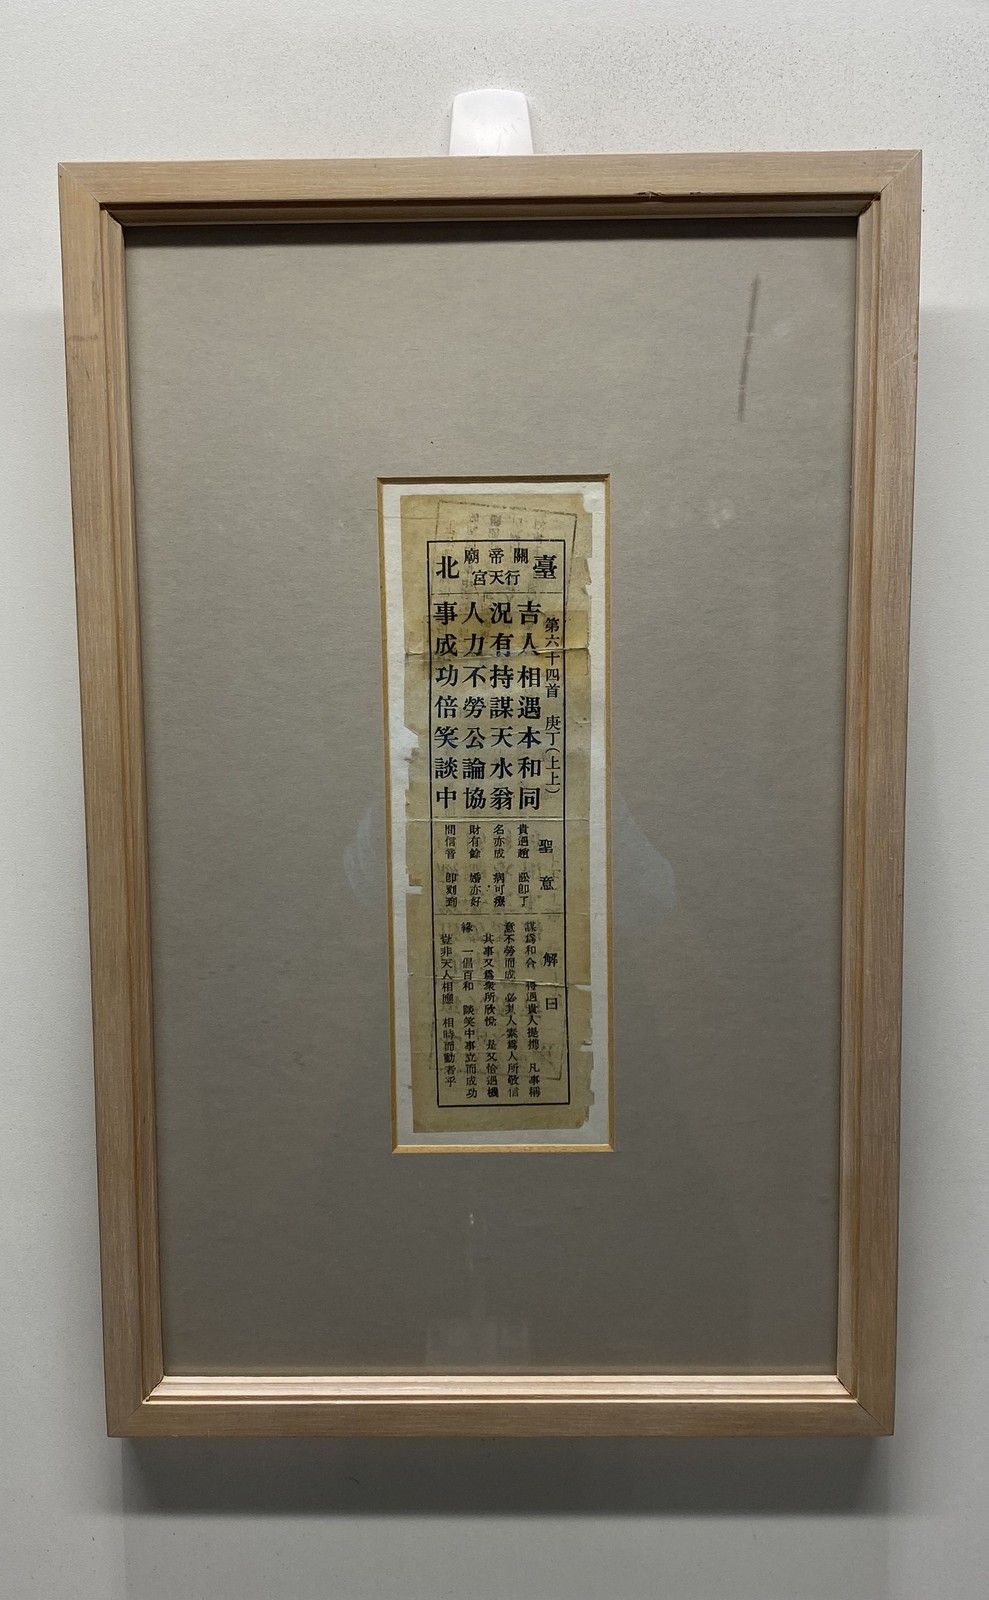 臺
關帝廟
行天宮
北
第六十四首 庚丁(上上)
吉人相遇本和同
況有持謀天水翁
人力不勞公論協
事成功倍笑談中
聖意
貴遇趙 訟即了
名亦成 病可療
財有餘 婚亦好
問信音 即刻到
解曰
謀爲和合 得遇貴人提携 凡事稱
意不勞而成 必其人素爲人所敬信
其事又爲衆所欣悅 是又恰遇機
緣 一倡百和 談笑中事立而成功
豈非天人相應 相時而動者乎